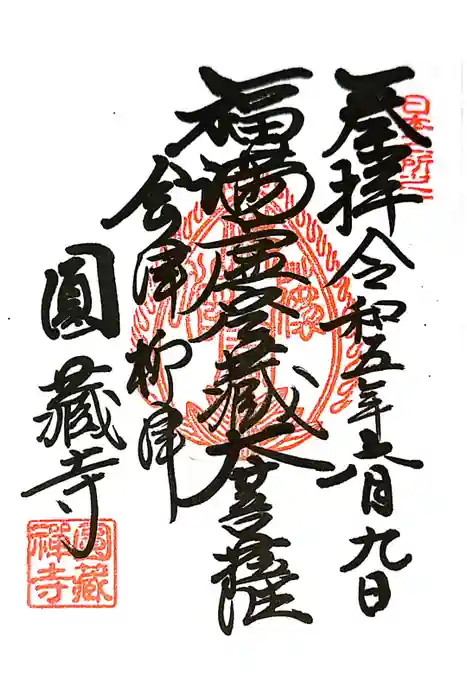 日本三所之一
登拝 令和五年六月九日
福満虚空蔵大菩薩
会津柳津
圓藏寺
圓藏禅寺